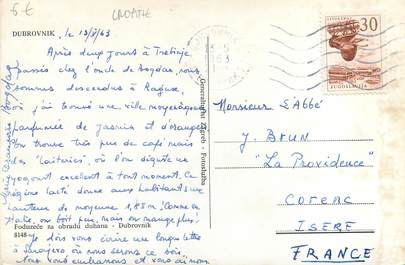 5€
CROATIE
DUBROVNIK, le 13/5/63
Après deux jours à Trebinje
passés chez l'oncle de Bogdan, nous
sommes descendus à Raguse,
où j'ai trouvé une ville moyenâgeuse
parfumée de jasmin et d'oranger
On trouve très peu de café mais
des "laiteries", où l'on déguste un
yogourt excellent à tout moment. Ce
régime lacté donne aux habitants une
hauteur de moyenne 1,85 m! Comme en
Italie, on boit peu, mais on mange plus!
Poduzeće za obradu duhana - Dubrovnik
8148
Je dois vous écrire une longue lettre
à Sarajevo où nous serons ce soir.
Nous vous embrassons et vous
Bogdan
Generalturist Zagreb - Fotoslužba
JUGOSLAVIJA
30
Monsieur l'Abbé
J. BRUN
"La Providence"
ISERE
FRANCE